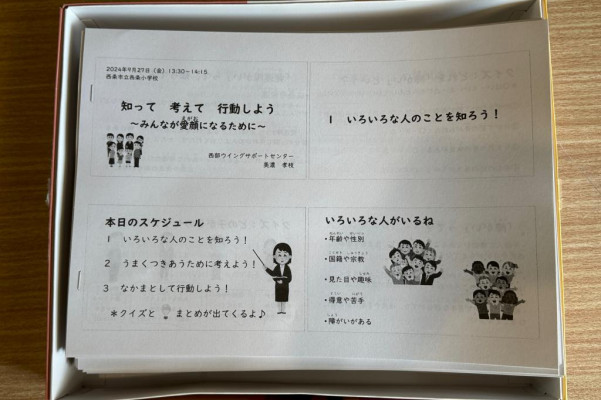 2024年9月27日（金）13:30～14:15
西条市立西条小学校
知って　考えて　行動しよう
えがお
～みんなが愛顔になるために～
西部ウイングサポートセンター
美濃　孝枝
1　いろいろな人のことを知ろう！
本日のスケジュール
1　いろいろな人のことを知ろう！
2　うまくつきあうために考えよう！
3　なかまとして行動しよう！
＊クイズと　まとめが出てくるよ♪
いろいろな人がいるね
ねんれい　せいべつ
・年齢や性別
こくせき　しゅうきょう
・国籍や宗教
しゅみ
・見た目や趣味
とくい　にがて
・得意や苦手
しょう
・障がいがある